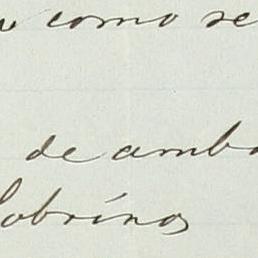 como se
de amb
Sobrinos